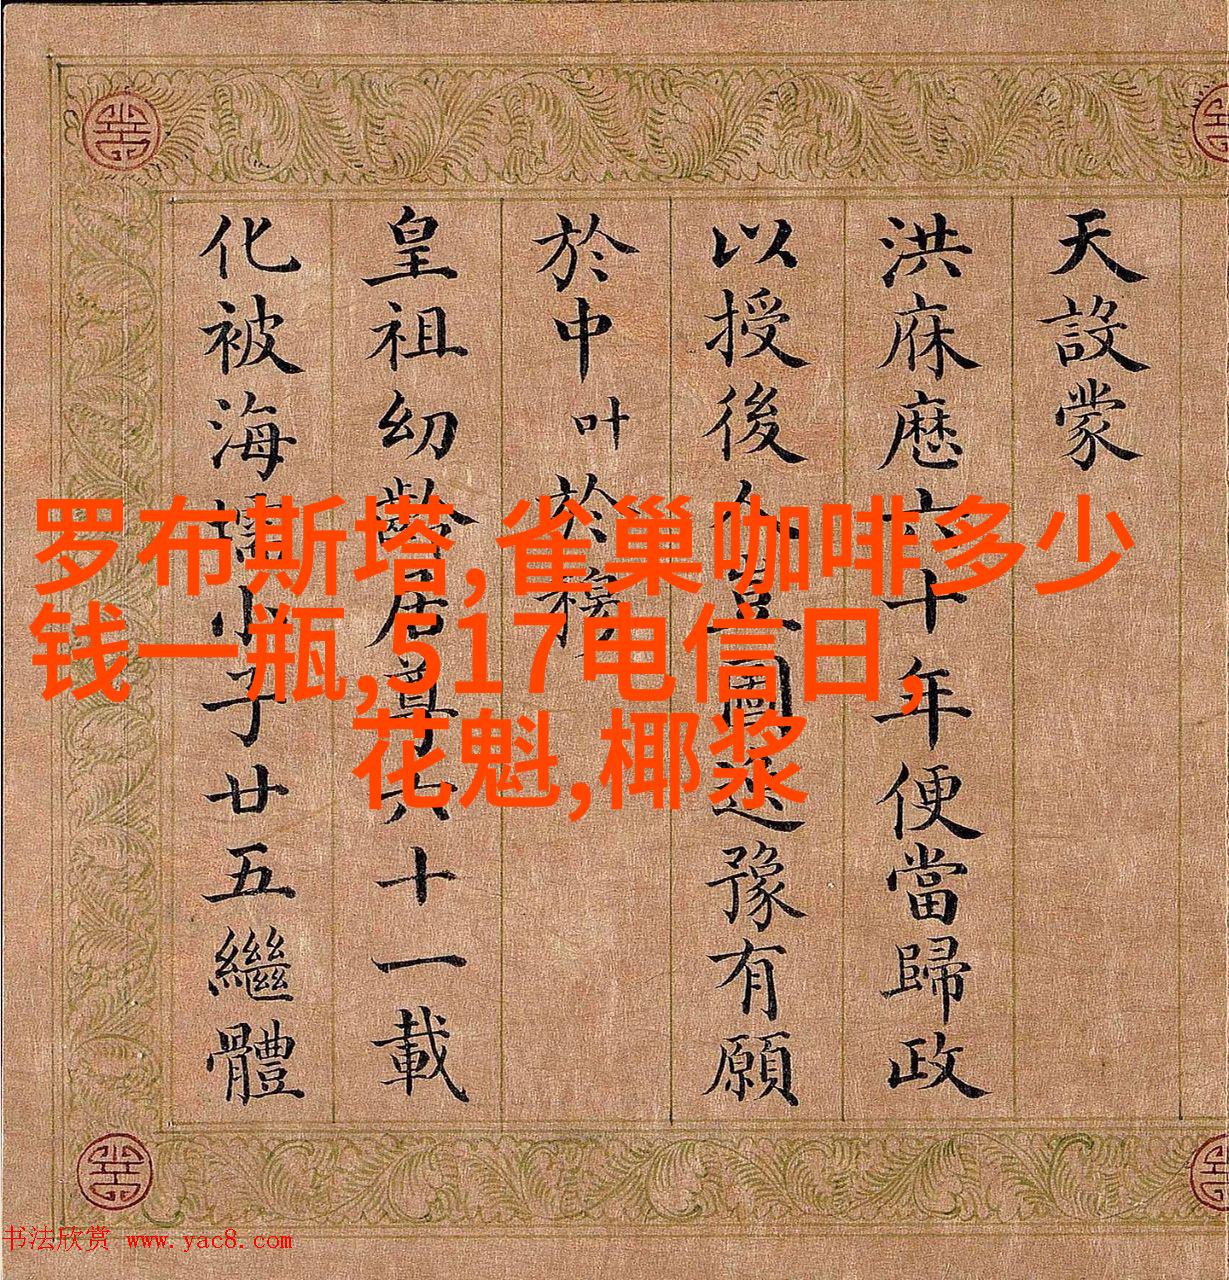 天設蒙
洪庥歷六十年便當歸政
以授後人豈圖豫有願
於中叶於
皇祖幼齡居尊六十一載
化被海壖小子廿五繼體
罗布斯塔,雀巢咖啡多少
钱一瓶,517电信日,
花魁,椰浆
书法欣赏 www.yac8.com